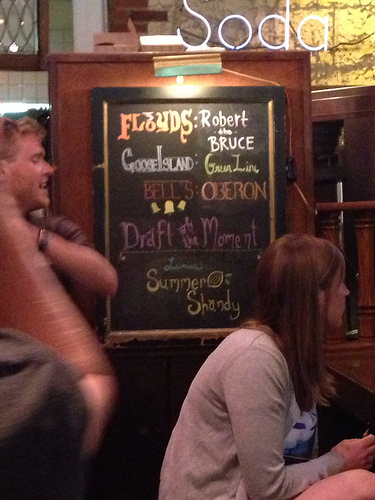 Soda
FLOYDS: Robert
the
BRUCE
GOOSE ISLAND: Green Line
BELL'S: OBERON
Draft of the Moment
Leinie's
Summer
Shandy